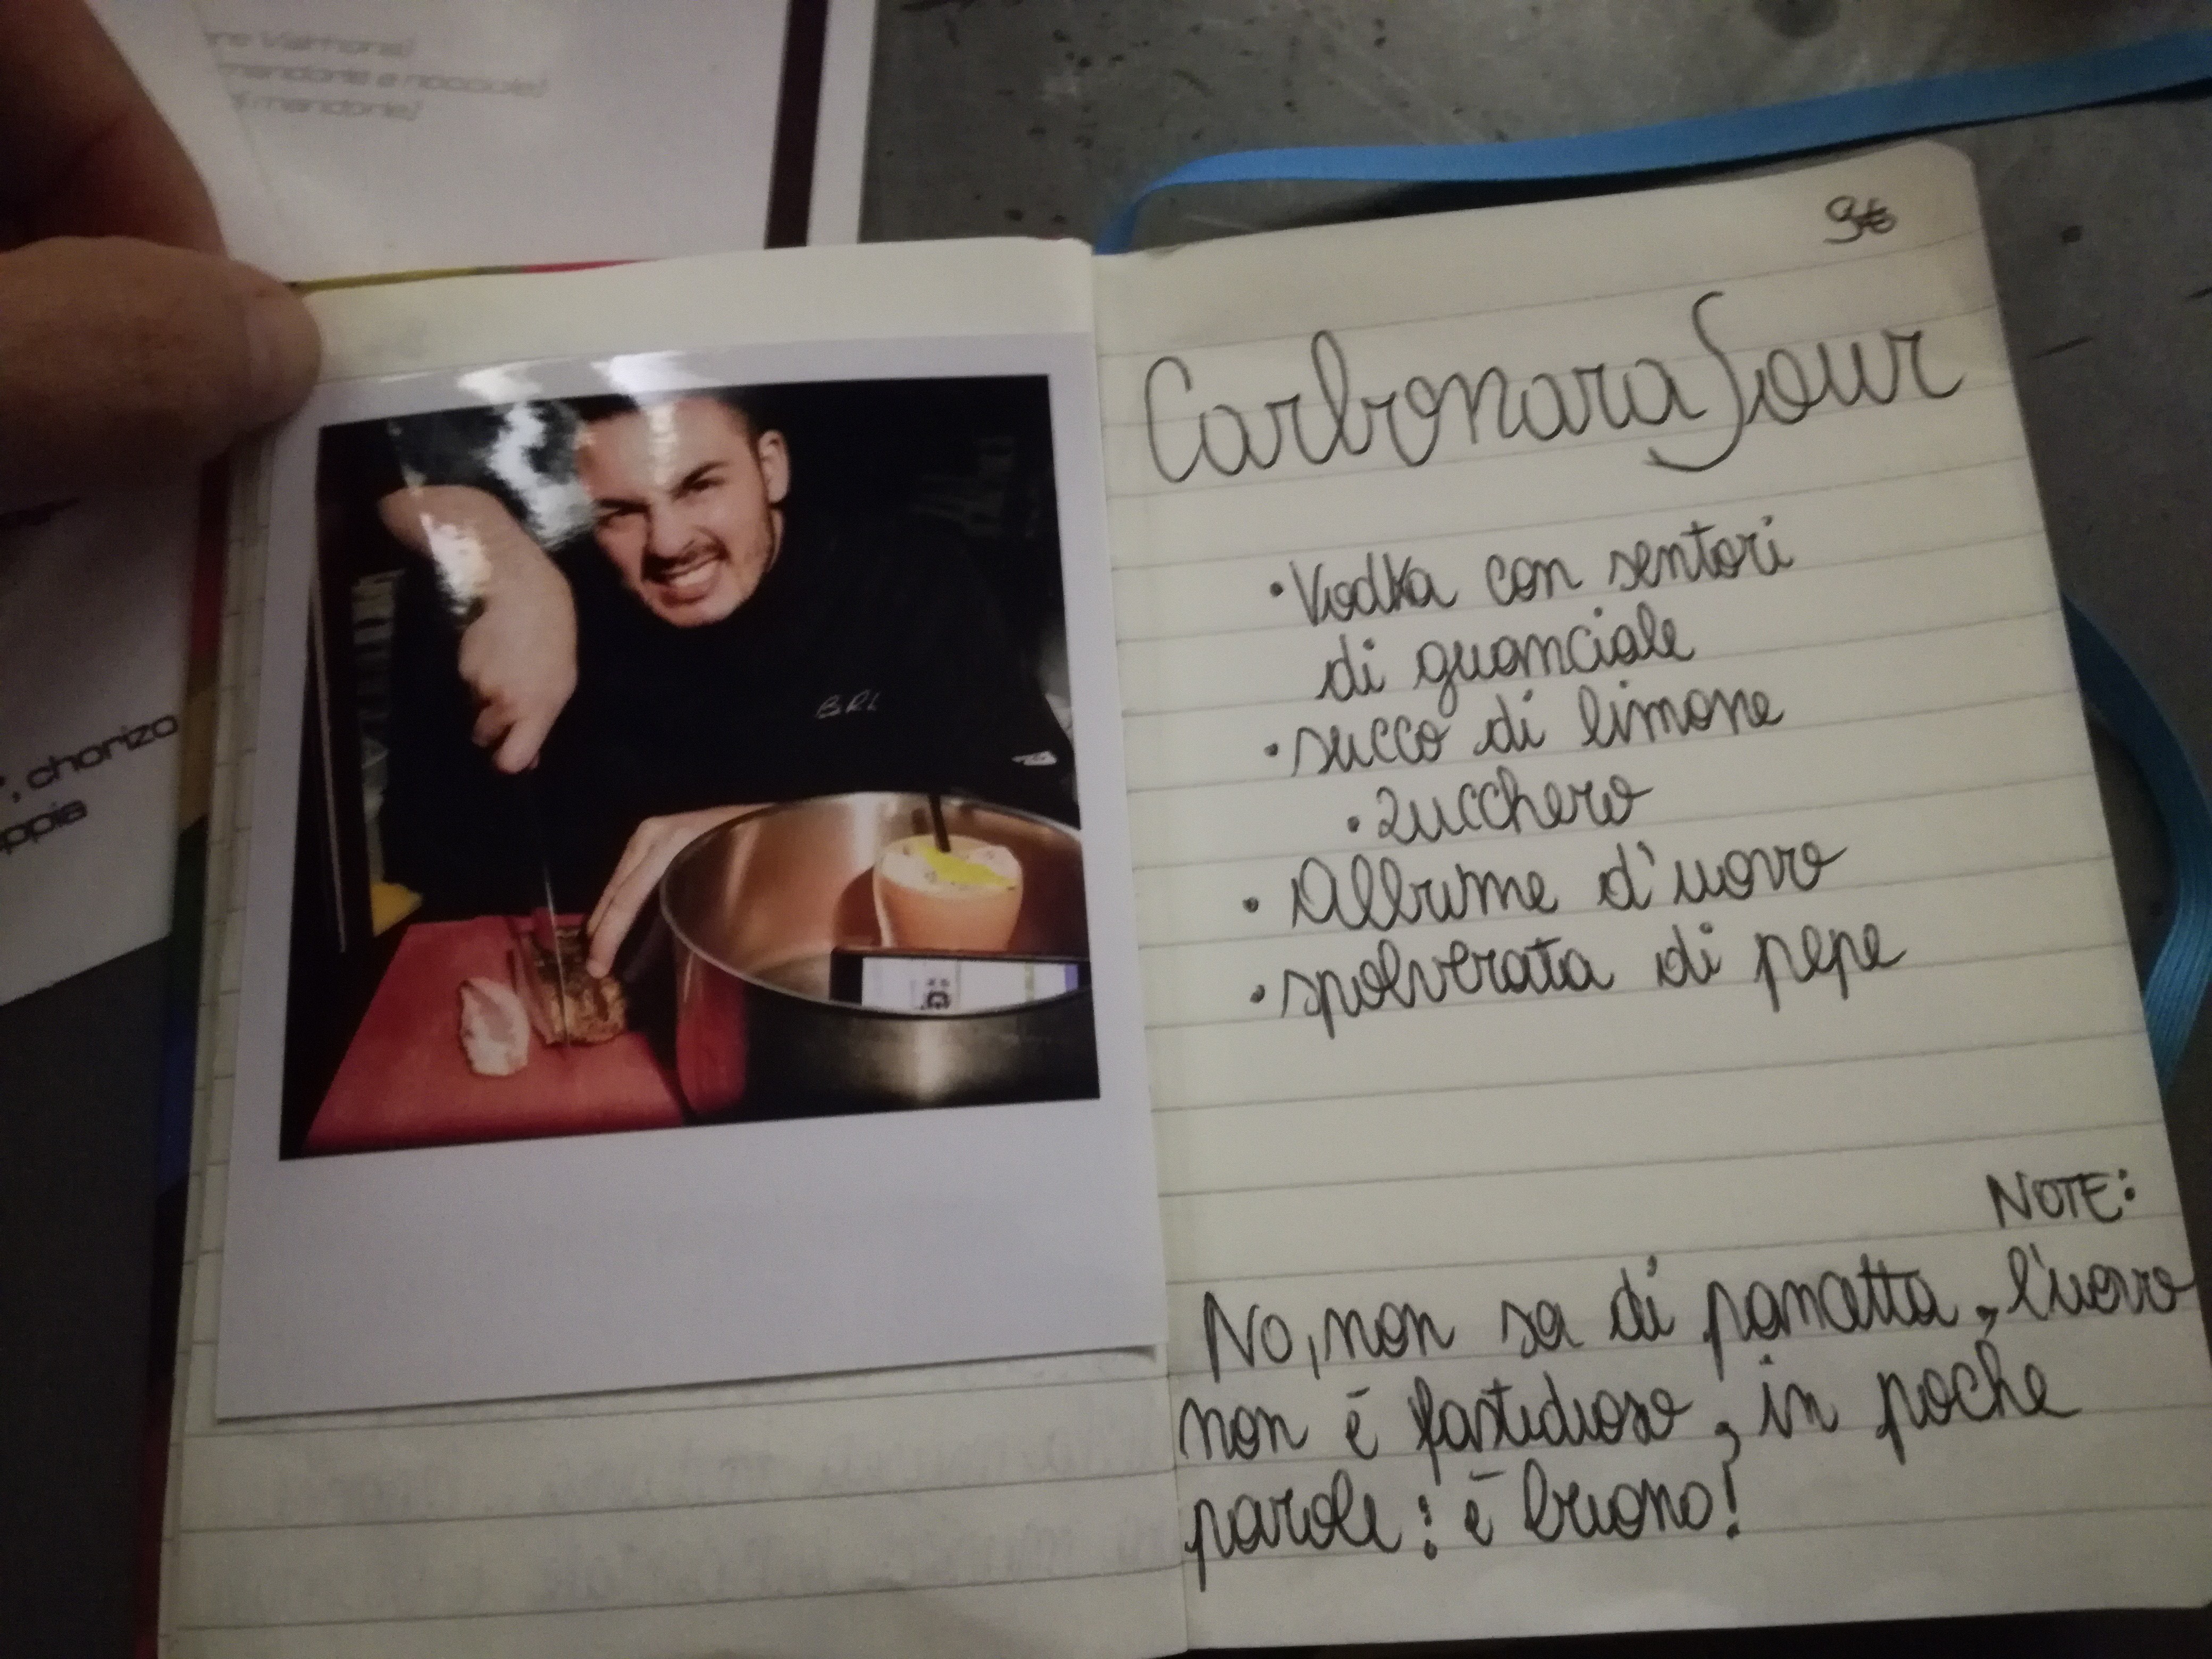 mandorle e nocciole)
mandorle)
, chorizo
BRL
9€
Carbonara Sour
• Vodka con sentori
di guanciale
• succo di limone
• zucchero
• Albume d'uovo
• spolverata di pepe
NOTE:
No, non sa di pancetta, l'uovo
non è fastidioso, in poche
parole: è buono!